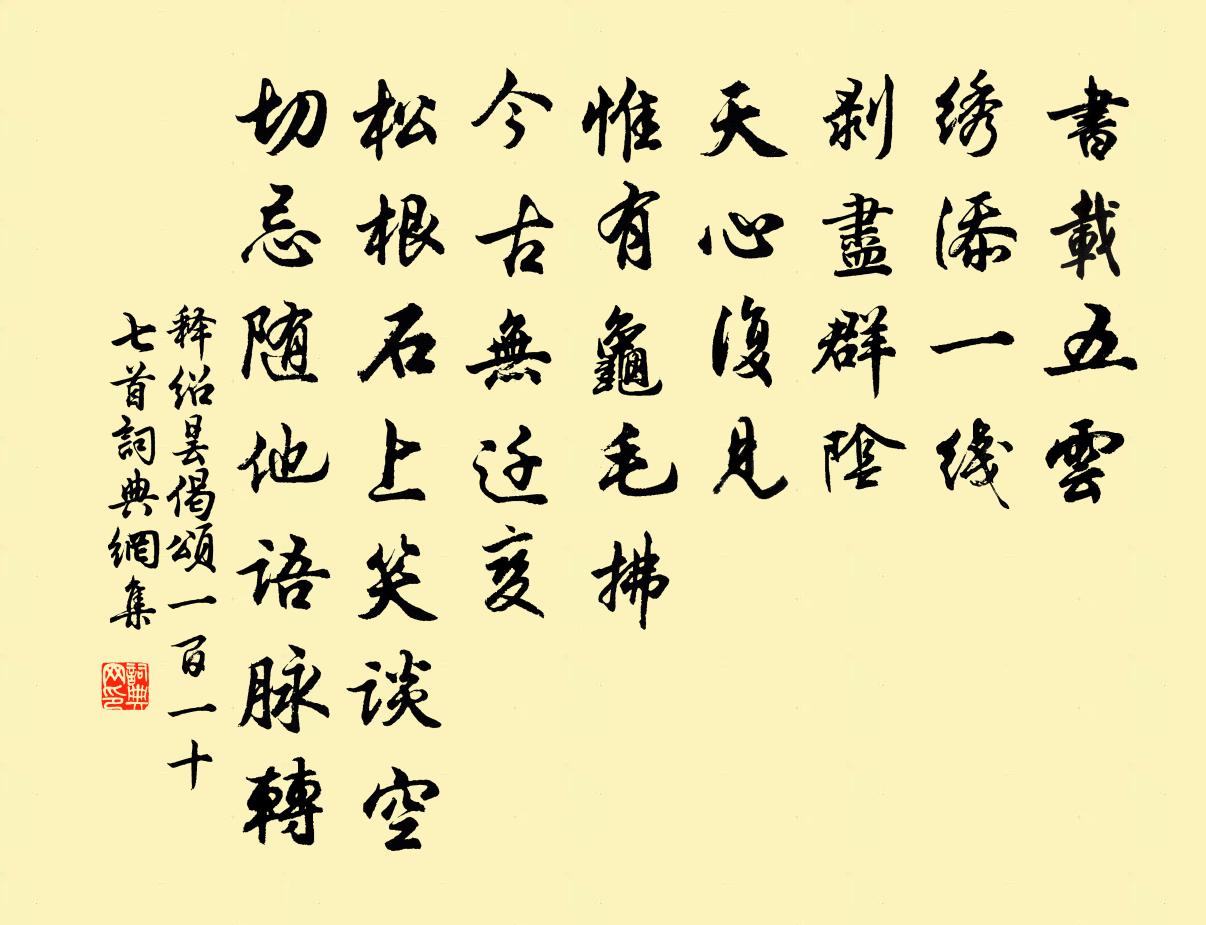 書載五雲
绣添一线
剥盡群陰
天心復見
惟有龜毛拂
今古無迁变
松根石上笑谈空
切忌随他语脉轉
释绍昙偈颂一百一十
七首詞典網集
詞典
网印